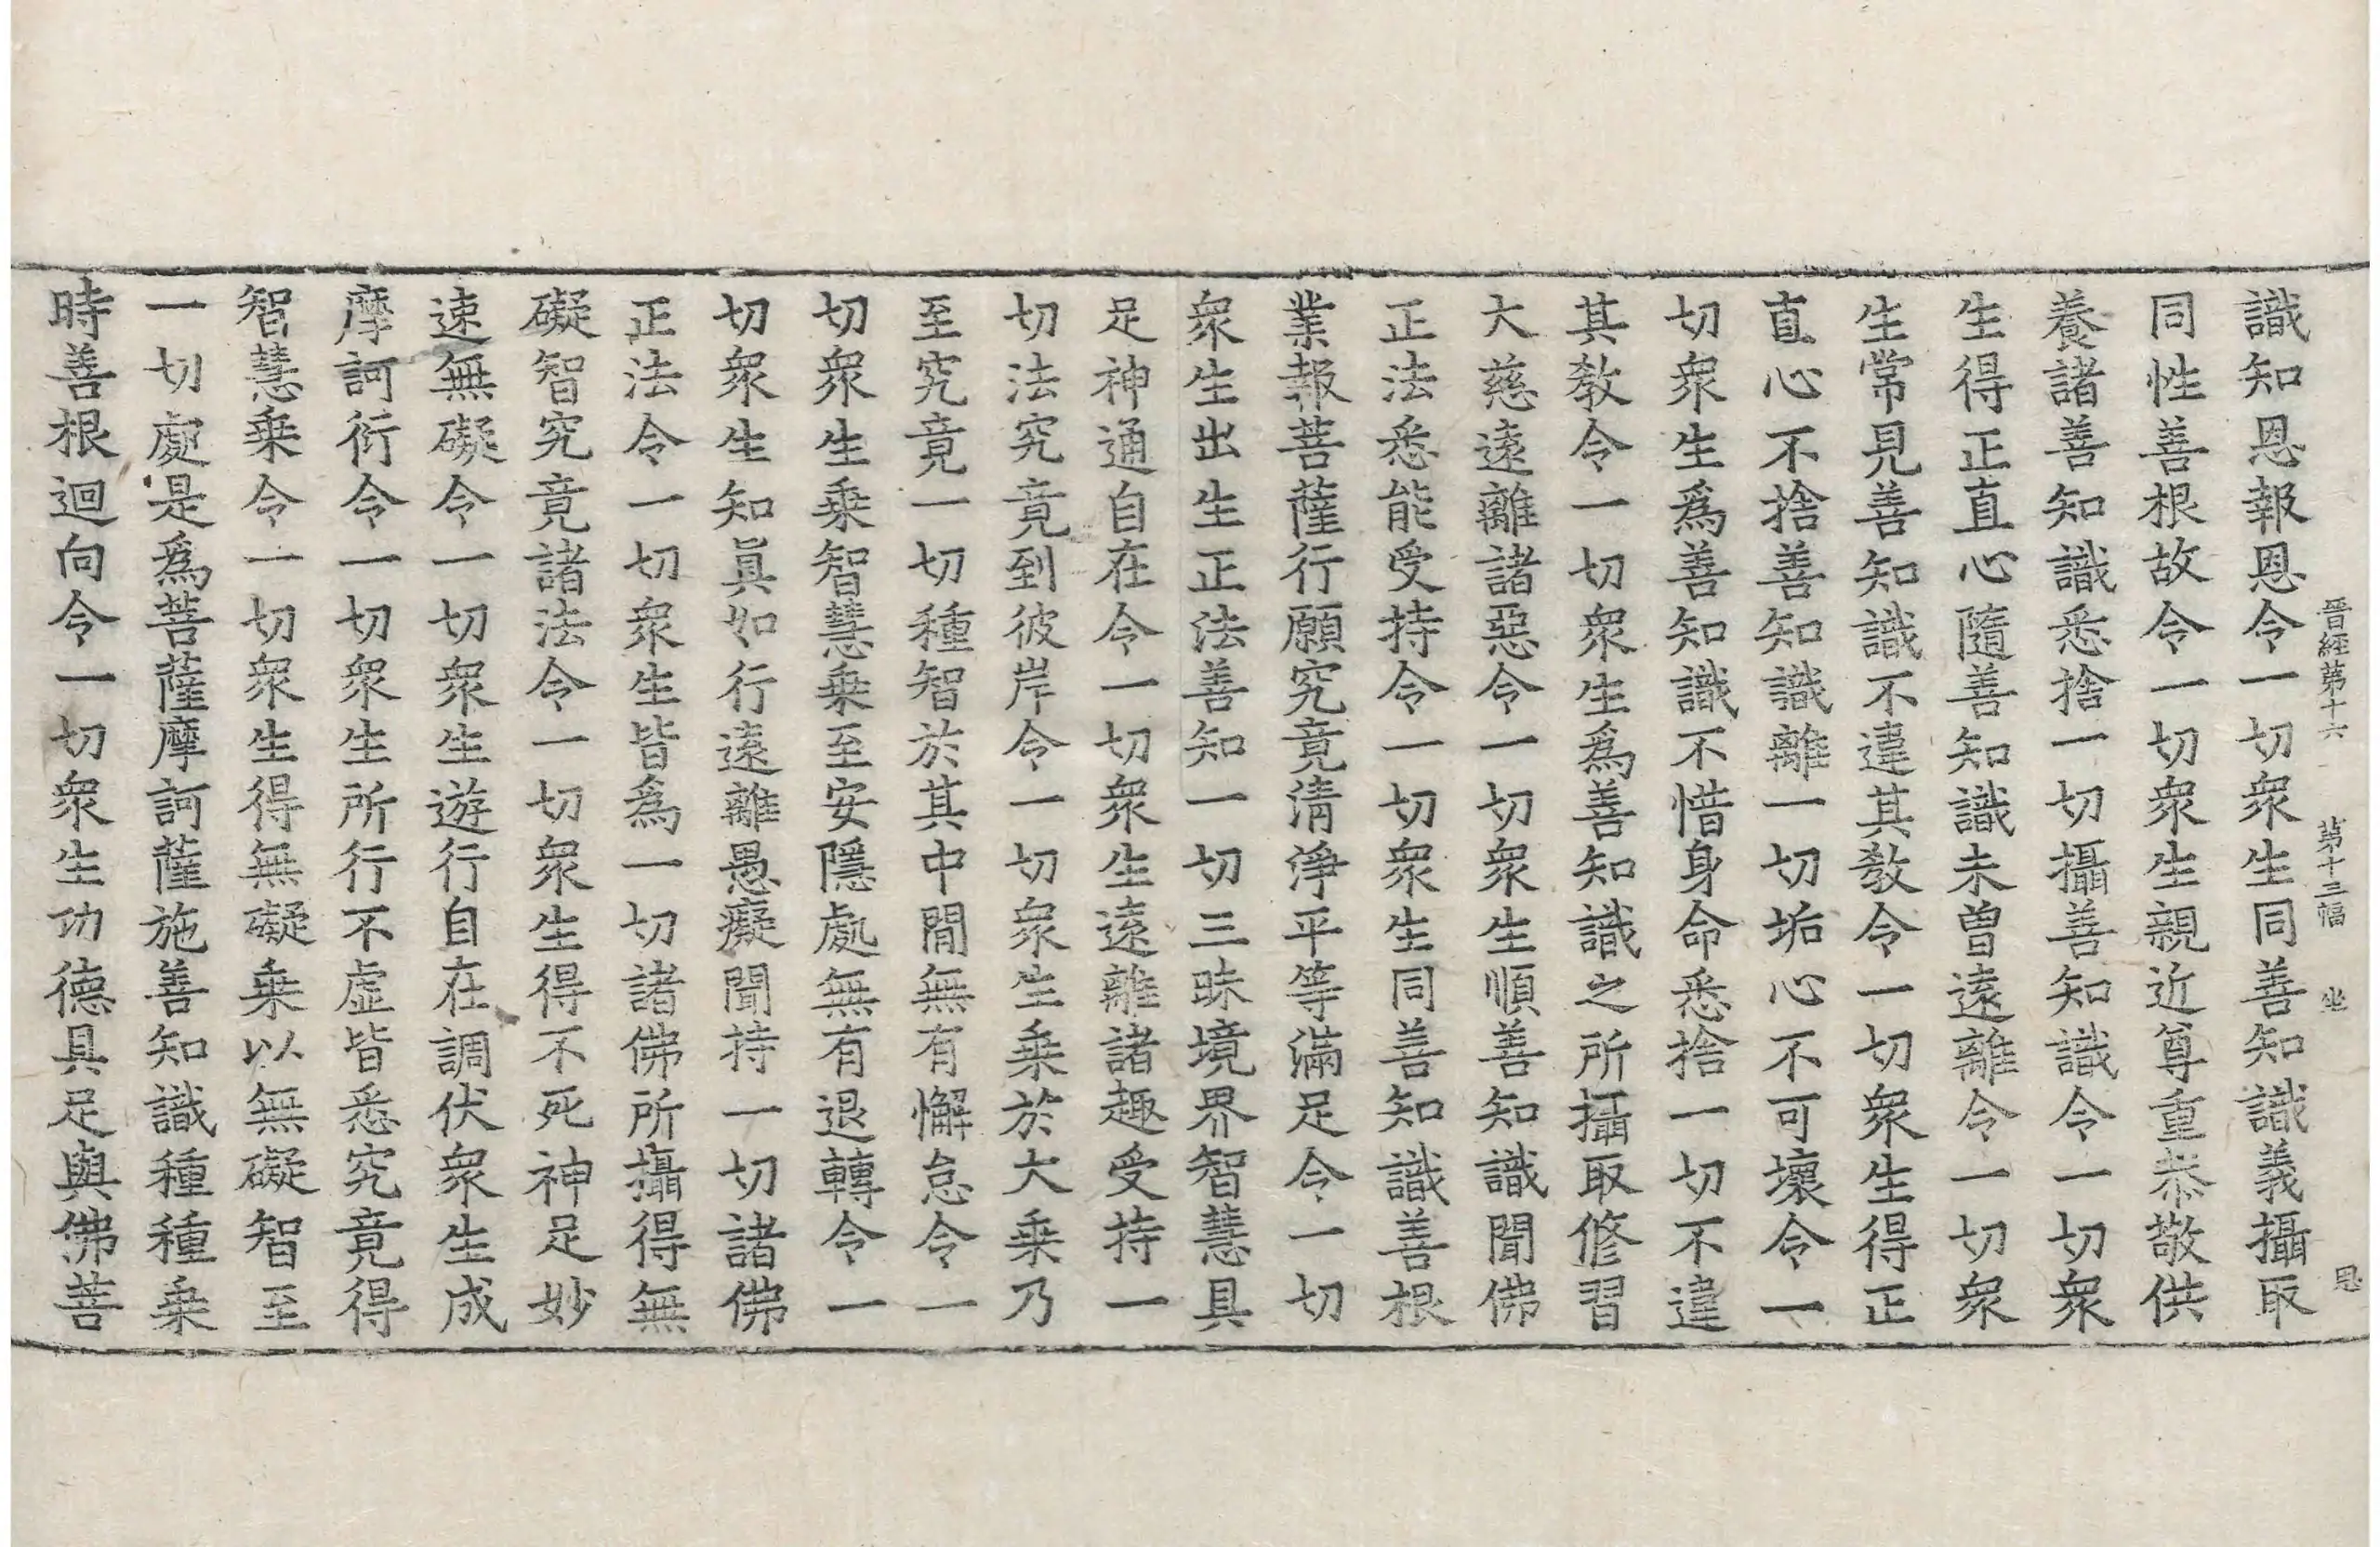 晉經第十六 第十三幅 坐 恩
識知恩報恩令一切衆生同善知識義攝取
同性善根故令一切衆生親近尊重恭敬供
養諸善知識悉捨一切攝善知識令一切衆
生得正直心隨善知識未曽遠離令一切衆
生常見善知識不違其教令一切衆生得正
直心不捨善知識離一切垢心不可壞令一
切衆生爲善知識不惜身命悉捨一切不違
其教令一切衆生爲善知識之所攝取修習
大慈遠離諸惡令一切衆生順善知識聞佛
正法悉能受持令一切衆生同善知識善根
業報菩薩行願究竟清淨平等滿足令一切
衆生出生正法善知一切三昧境界智慧具
足神通自在令一切衆生遠離諸趣受持一
切法究竟到彼岸令一切衆生乗於大乗乃
至究竟一切種智於其中間無有懈怠令一
切衆生乗智慧乗至安隱處無有退轉令一
切衆生知眞如行遠離愚癡聞持一切諸佛
正法令一切衆生皆爲一切諸佛所攝得無
礙智究竟諸法令一切衆生得不死神足妙
速無礙令一切衆生遊行自在調伏衆生成
摩訶衍令一切衆生所行不虛皆悉究竟得
智慧乗令一切衆生得無礙乗以無礙智至
一切處是爲菩薩摩訶薩施善知識種種乗
時善根迴向令一切衆生功德具足與佛菩